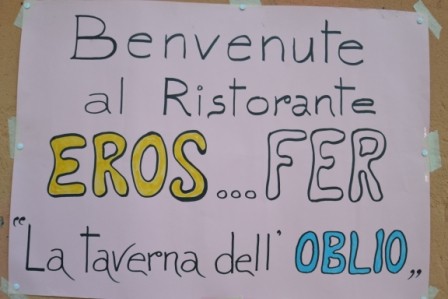 Benvenute
al Ristorante
EROS...FER
"La taverna dell' OBLIO„